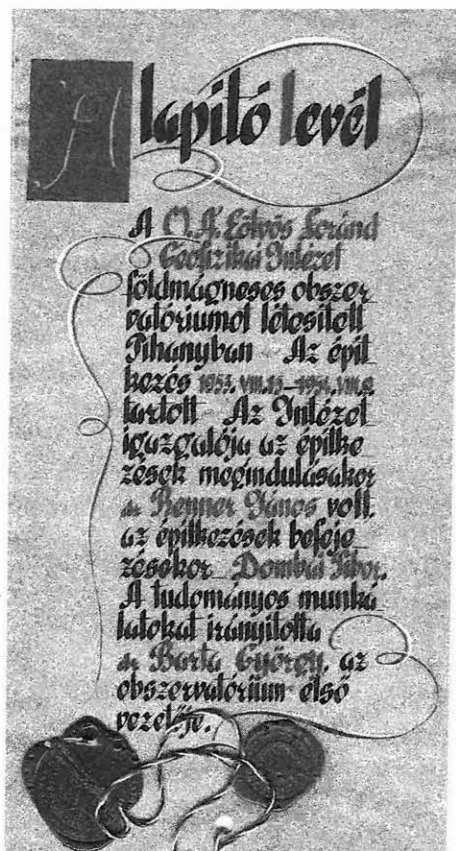 Alapító levél
A M. Á. Eötvös Loránd
Geofizikai Intézet
földmágneses obszer
vatóriumot létesített
Tihanyban Az épít
kezés 1953. VIII. 13–1954. VIII.
tartott Az Intézet
igazgatója az építke
zések megindulásakor
dr Renner János volt,
az építkezések befeje
zésekor Dombai Tibor.
A tudományos munká
latokat irányította
dr Barta György, az
obszervatórium első
vezetője.